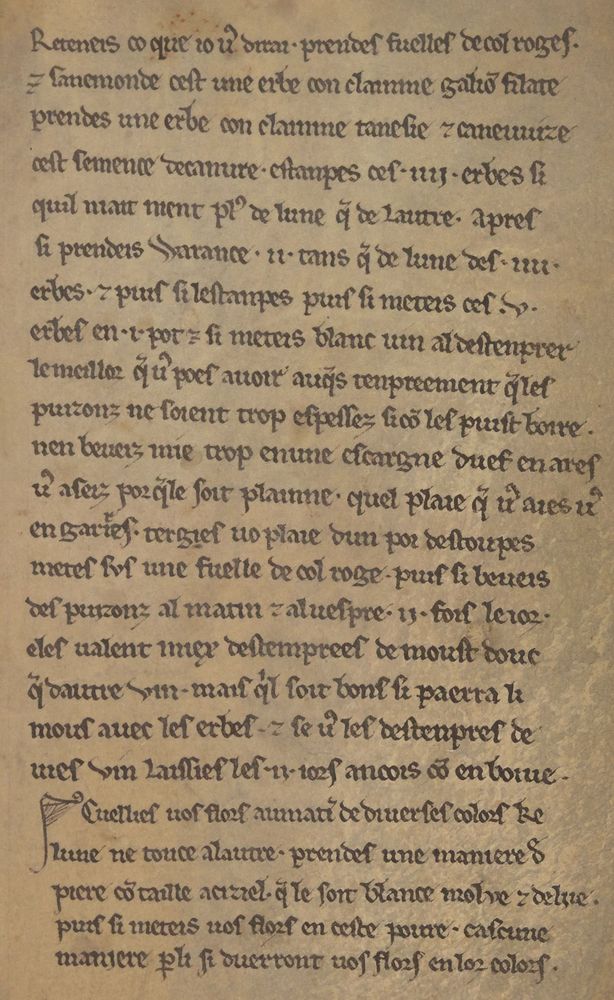 Reteneis ce que io v᷑ dirai · prendes fuelles de col roges ·
⁊ sanemonde cest une erbe con claimme galiōfilate
prendes une erbe con claimme tanesie ⁊ caneuuize
cest semence decanure · estanpes ces · iiij · erbes si
quil niait nient pl᷒ de lune q̄ de lautre · Apres
si prendeis Warance · ii · tans q̄ de lune des · iiii ·
erbes · ⁊ puis si lestanpes puis si meteis ces · v ·
erbes en · i · pot ⁊ si meteis blanc uin al destenprer
le meillor q̄ v᷑ poes auoir auq̄s tenpreement q̄ les
puizonz ne soient trop espessez si cō les puist boire ·
nen beueiz mie trop en une escargne duef en ares
v᷑ aseiz por q̄le soit plainne · quel plaie q̄ v᷑ aies v᷑
en garires · tergies uo plaie dun poi destoupes
metes sus une fuelle de col roge · puis si beueis
des puizonz al matin ⁊ al uespre · ij · fois le ior ·
eles ualent miex destemprees de moust douc
q̄ dautre vin · mais q̄l soit bons si paerra li
mous auec les erbes · ⁊ se v᷑ les destenpres de
uies vin Laissies les · ii · iors ancois cō en boiue ·
Cuellies uos flors au matī de diuerses colors Ke
lune ne touce alautre · prendes une maniere d̄
piere cō taille aciziel · q̄ le soit blance molue ⁊ deliie ·
puis si meteis uos flors en ceste poure · cascune
maniere ꝑ li si duerront uos flors en lor colors ·